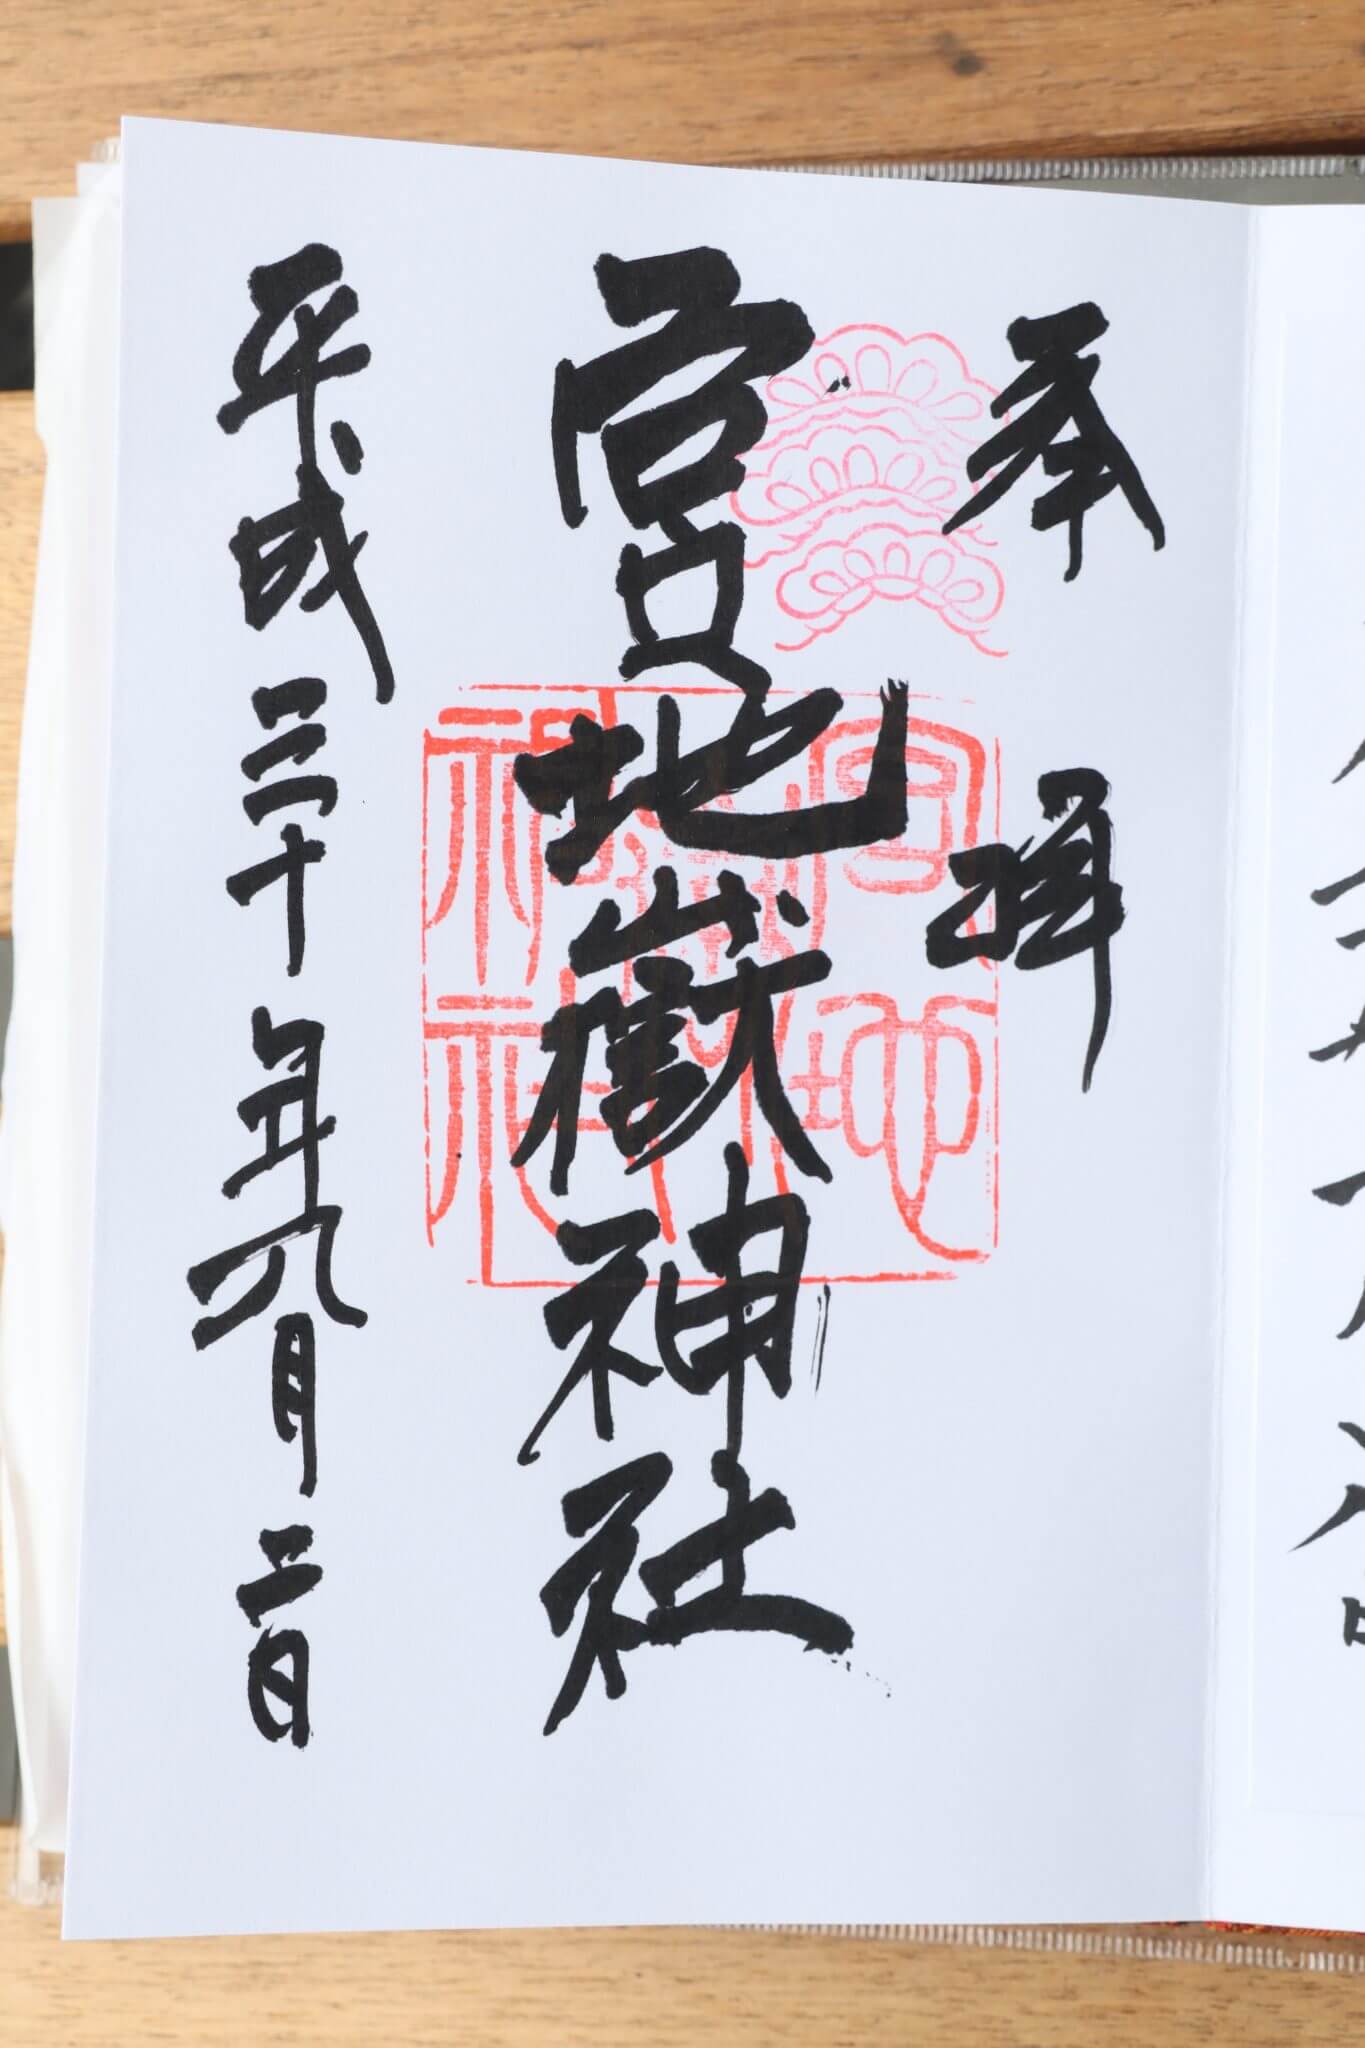 奉拝
宮地嶽神社
平成三十年九月二日
宮地
嶽
神社